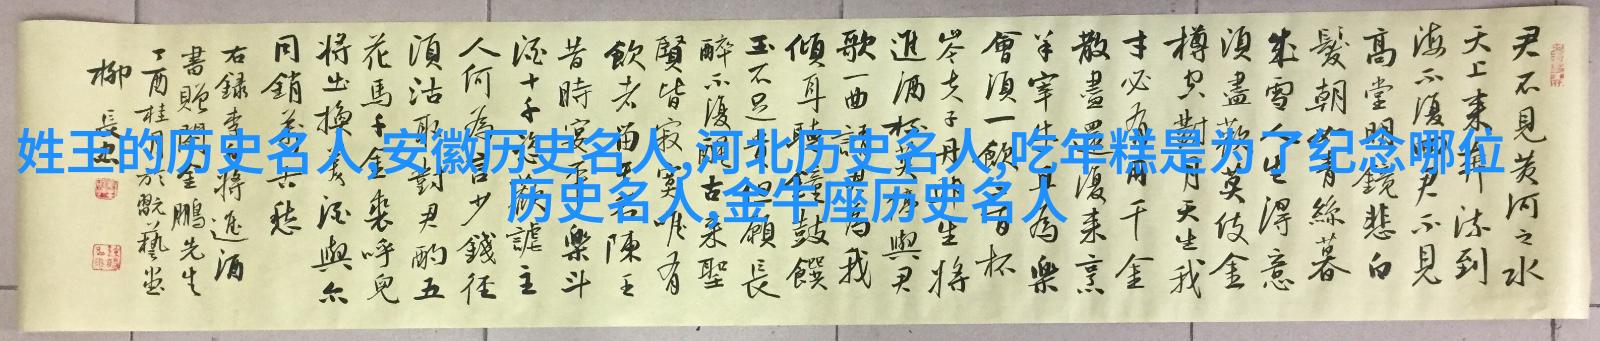 姓王的历史名人,安徽历史名人,河北历史名人,吃年糕是为了纪念哪位
历史名人,金牛座历史名人
君不見黃河之水
天上来奔流到
海不復回君不見
高堂明鏡悲白
髮朝如青絲暮
成雪人生得意
須盡歡莫使金
樽空對月天生我
才必有用千金
散盡還復来烹
羊宰牛且為樂
會須一飲三百杯
岑夫子丹丘生將
進酒杯莫停與君
歌一曲請君為我
傾耳聽鐘鼓饌
玉不足貴但願長
醉不復醒古来聖
賢皆寂寞唯有
飲者留其名陳王
昔時宴平樂斗
酒十千恣歡謔主
人何為言少錢径
須沽取對君酌五
花馬千金裘呼兒
將出換美酒與尔
同銷萬古愁
右録李白將進酒
書贈金鵬先生
丁酉桂月於翫藝堂
柳長